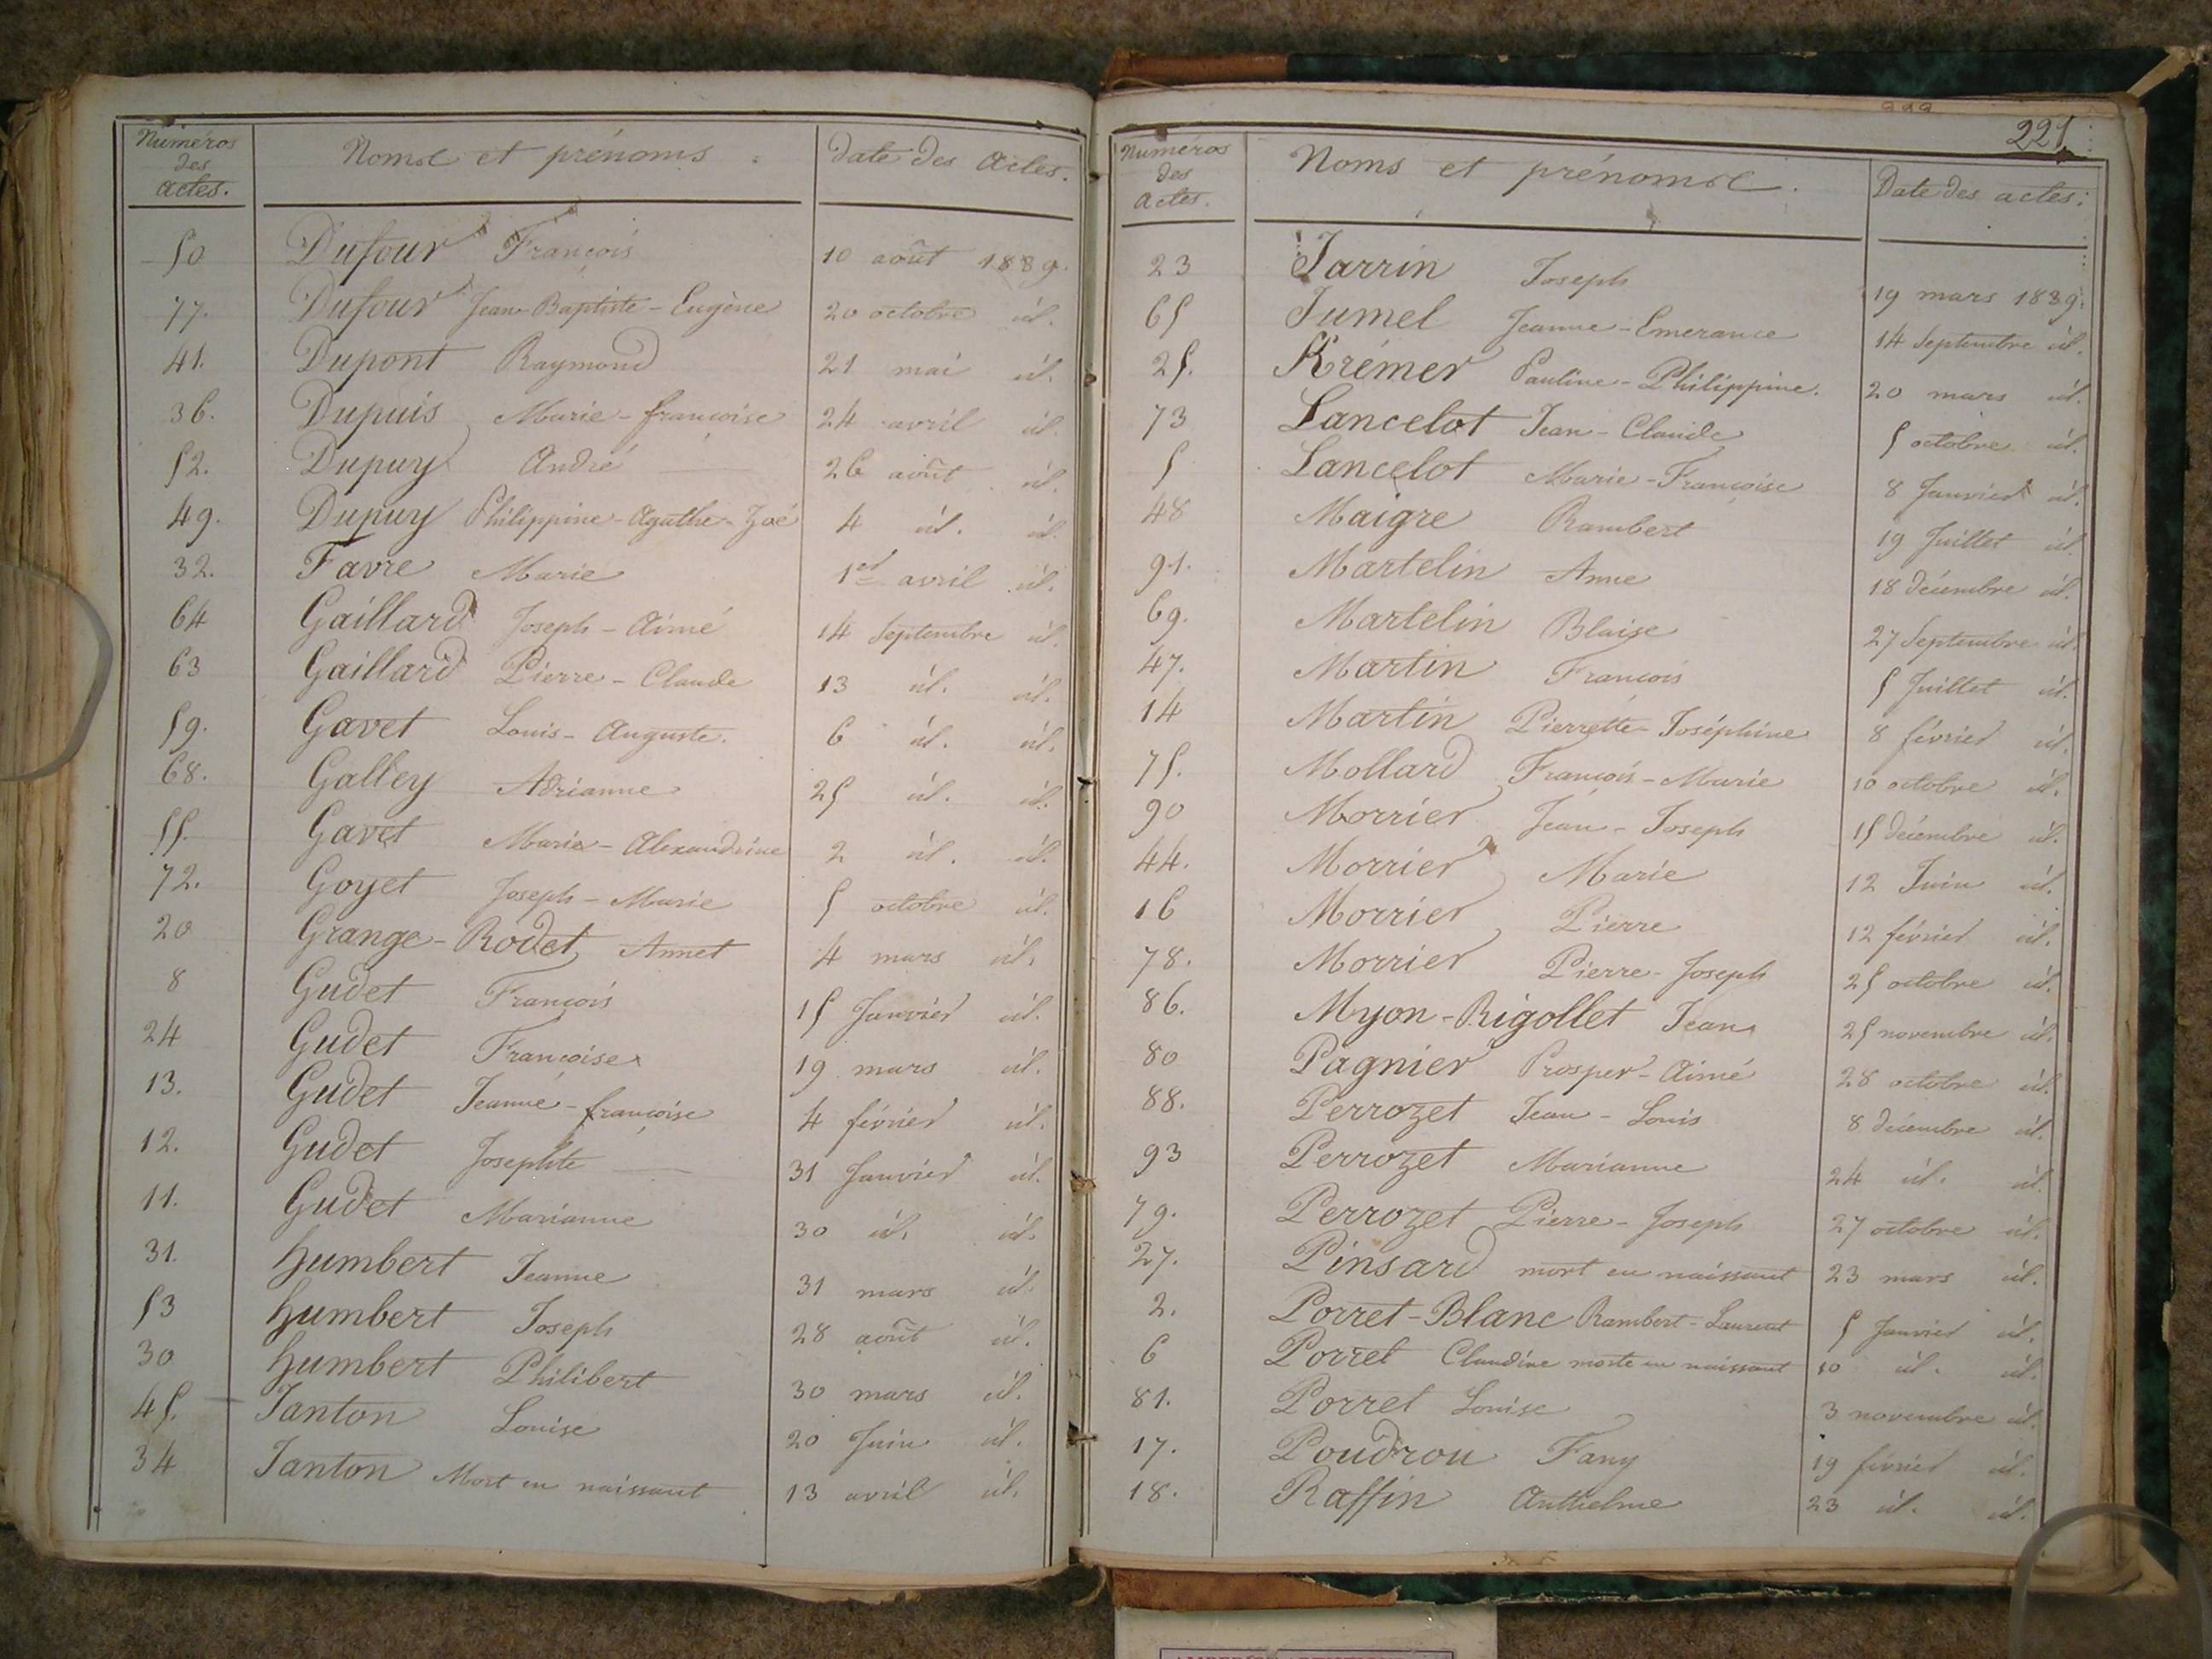 Numéros des actes. Noms et prénoms. Date des Actes.
50 Dufour François 10 août 1839.
77. Dufour Jean-Baptiste-Eugène 20 octobre id.
41. Dupont Raymond 21 mai id.
36. Dupuis Marie-françoise 24 avril id.
52. Dupuy André 26 août id.
49. Dupuy Philippine-Agathe-Zoé 4 id. id.
32. Favre Marie 1er avril id.
64 Gaillard Joseph-Aimé 14 Septembre id.
63 Gaillard Pierre-Claude 13 id. id.
59. Gavet Louis-Auguste. 6 id. id.
68. Galley Adrianne 25 id. id.
55. Gavet Marie-Alexandrine 2 id. id.
72. Goyet Joseph-Marie 5 octobre id.
20 Grange-Rodet Annet 4 mars id.
8 Gudet François 15 Janvier id.
24 Gudet Françoise 19 mars id.
13. Gudet Jeanne-françoise 4 février id.
12. Gudet Josephte 31 Janvier id.
11. Gudet Marianne 30 id. id.
31. humbert Jeanne 31 mars id.
53 humbert Joseph 28 août id.
30 humbert Philibert 30 mars id.
45. Janton Louise 20 Juin id.
34 Janton Mort en naissant 13 avril id.
221
Numéros des actes. Noms et prénoms. Date des actes.
23 Jarrin Joseph 19 mars 1839.
65 Jumel Jeanne-Emerance 14 Septembre id.
25. Krémer Pauline-Philippine. 20 mars id.
73 Lancelot Jean-Claude 5 octobre id.
5 Lancelot Marie-Françoise 8 Janvier id.
48 Maigre Rambert 19 Juillet id.
91. Martelin Anne 18 décembre id.
69. Martelin Blaise 27 Septembre id.
47. Martin François 5 Juillet id.
14 Martin Pierrette-Joséphine 8 février id.
75. Mollard François-Marie 10 octobre id.
90 Morrier Jean-Joseph 15 décembre id.
44. Morrier Marie 12 Juin id.
16 Morrier Pierre 12 février id.
78. Morrier Pierre-Joseph 25 octobre id.
86. Myon-Rigollet Jean 25 novembre id.
80 Pagnier Prosper-Aimé 28 octobre id.
88. Perrozet Jean-Louis 8 décembre id.
93 Perrozet Marianne 24 id. id.
79. Perrozet Pierre-Joseph 27 octobre id.
27. Pinsard mort en naissant 23 mars id.
2. Porret-Blanc Rambert-Laurent 5 Janvier id.
6 Porret Claudine morte en naissant 10 id. id.
81. Porret Louise 3 novembre id.
17. Poudrou Fany 19 février id.
18. Raffin Anthelme 23 id. id.